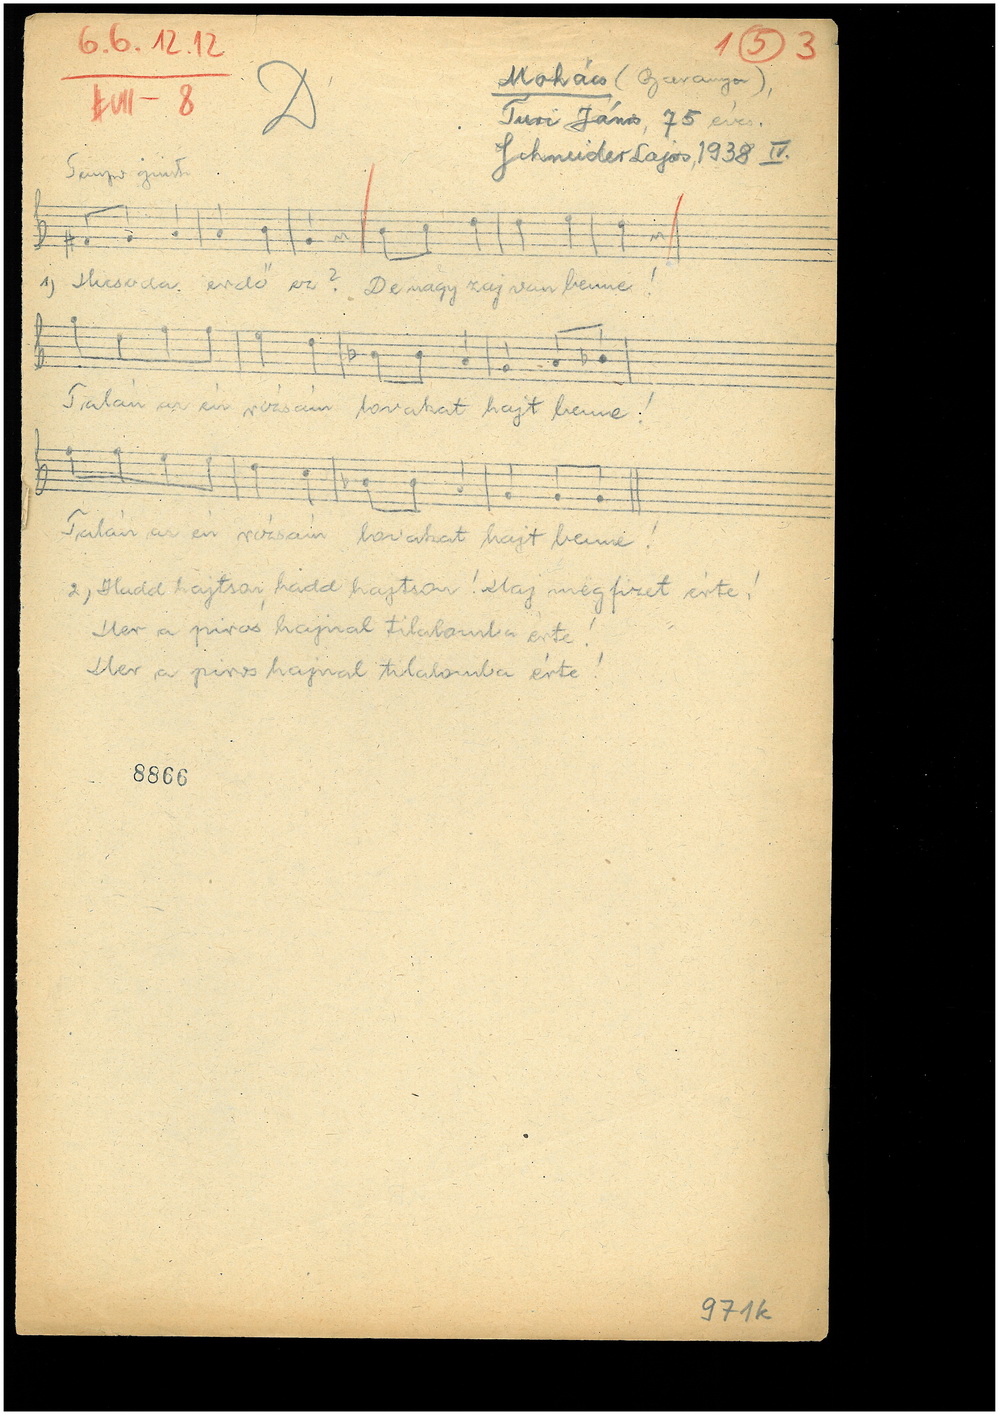 6.6.12.12
1 5 3
VIII - 8
D
Mohács (Baranya),
Turi János, 75 éves.
Schneider Lajos, 1938 IV.
Tempo giusto
1) Micsoda erdő ez? De nagy zaj van benne!
Talán az én rózsám lovakat hajt benne!
Talán az én rózsám lovakat hajt benne!
2, Hadd hajtson, hadd hajtson! Maj megfizet érte!
Mer a piros hajnal tilalomba érte!
Mer a piros hajnal tilalomba érte!
8866
971k